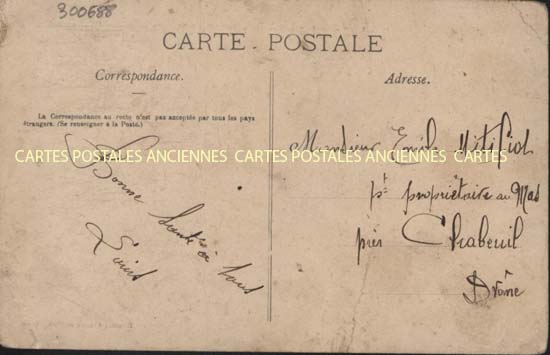 300688
CARTE POSTALE
Correspondance.
Adresse.
La Correspondance au recto n'est pas acceptée par tous les pays
étrangers. (Se renseigner à la Poste.)
CARTES POSTALES ANCIENNES CARTES POSTALES ANCIENNES CARTES
Bonne Santé à tous
Monsieur Emile
pt propriétaire au Mas
près Chabeuil
Drôme